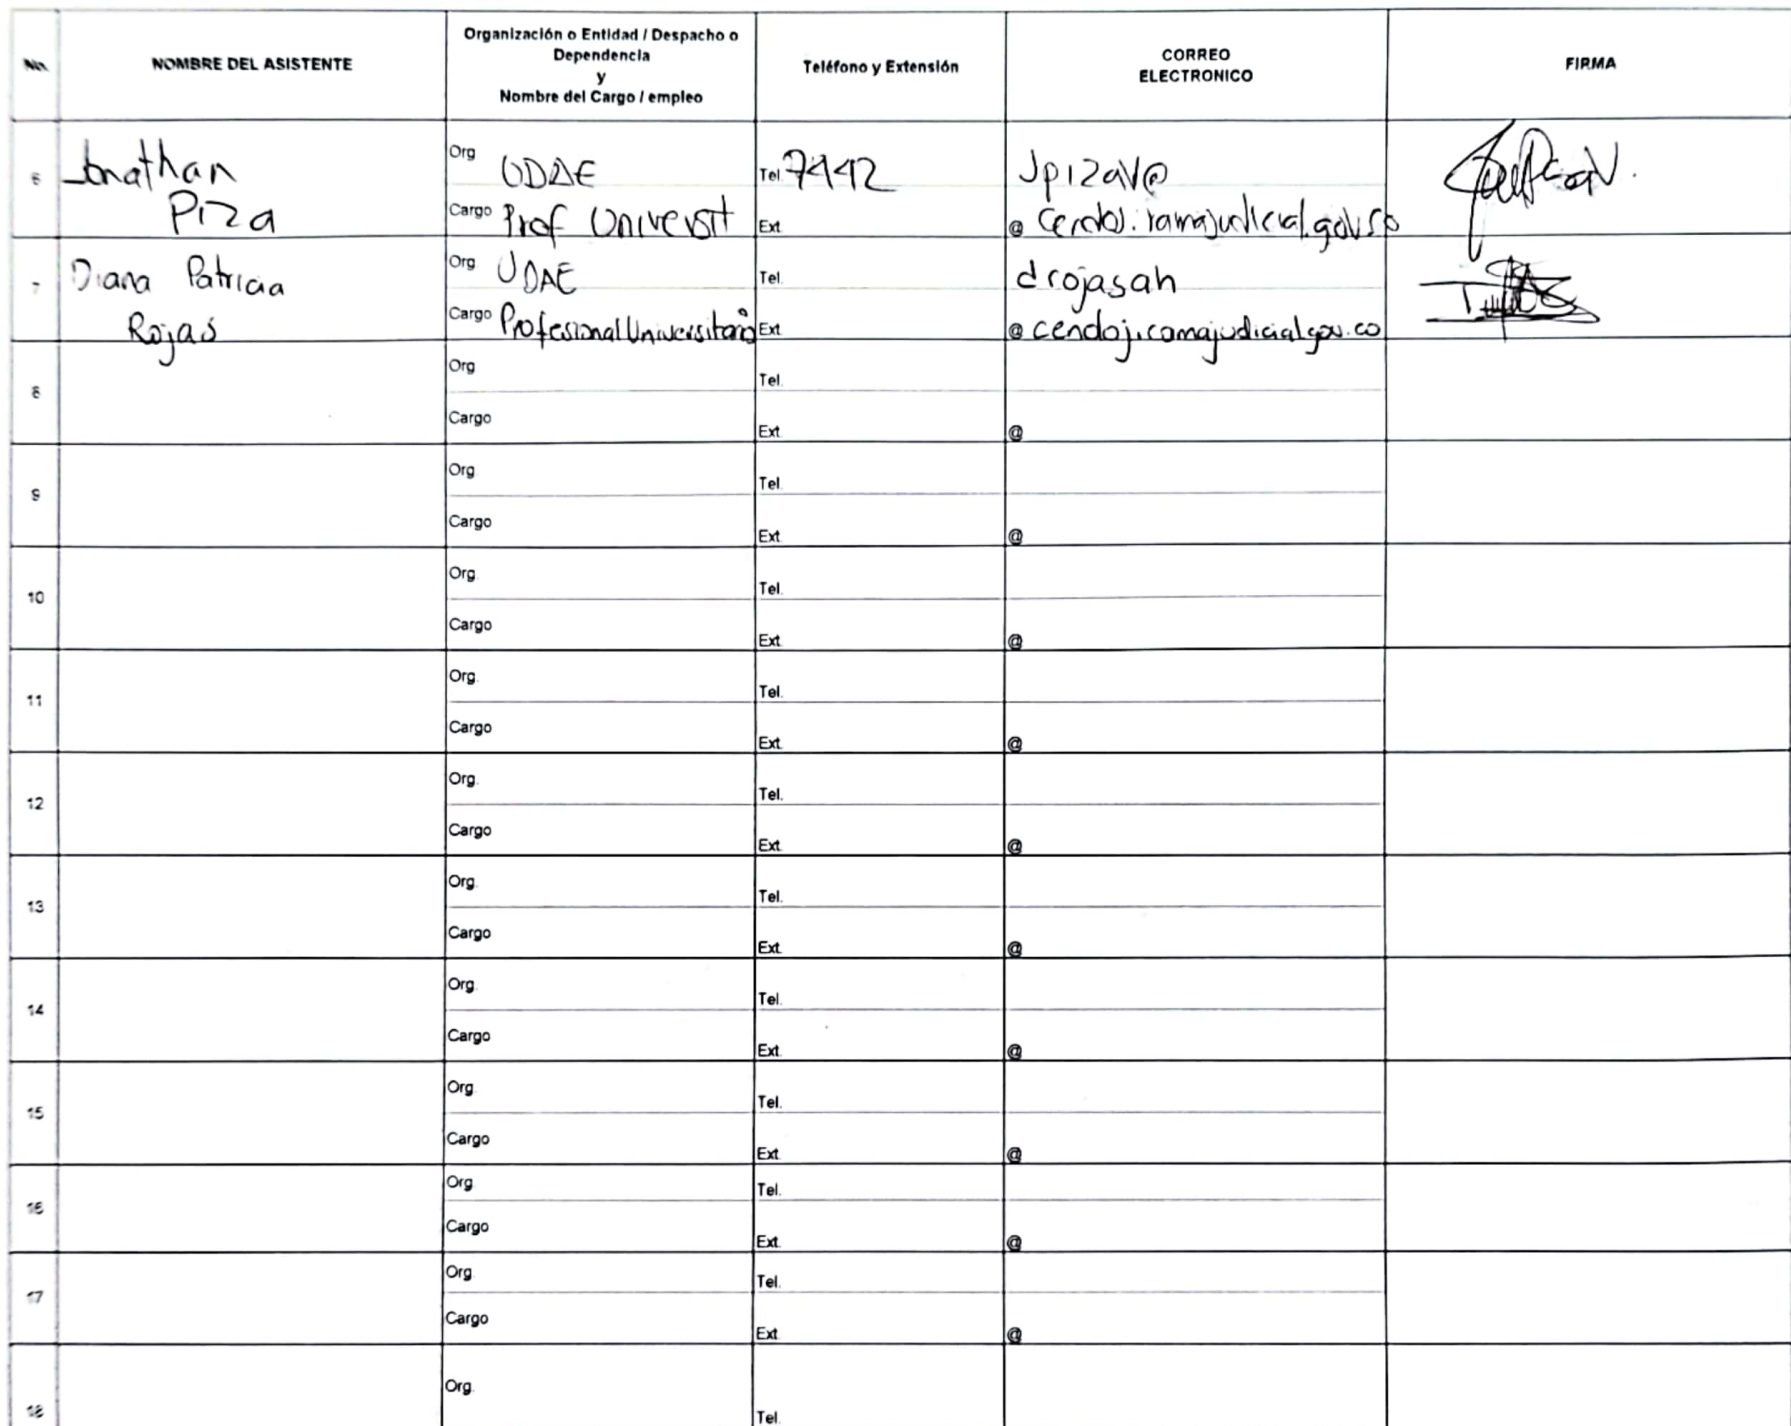 No.
NOMBRE DEL ASISTENTE
Organización o Entidad / Despacho o
Dependencia
y
Nombre del Cargo / empleo
Teléfono y Extensión
CORREO
ELECTRONICO
FIRMA
6
Jonathan
Piza
Org UDAE
Cargo Prof Universit
Tel. 7442
Ext
Jpizav@
@ cendoj.ramajudicial.gov.co
7
Diana Patricia
Rojas
Org UDAE
Cargo Profesional Universitario
Tel.
Ext
drojasah
@ cendoj.ramajudicial.gov.co
8
Org
Cargo
Tel.
Ext
@
9
Org
Cargo
Tel.
Ext
@
10
Org.
Cargo
Tel.
Ext
@
11
Org.
Cargo
Tel.
Ext
@
12
Org.
Cargo
Tel.
Ext
@
13
Org.
Cargo
Tel.
Ext
@
14
Org.
Cargo
Tel.
Ext
@
15
Org
Cargo
Tel.
Ext
@
16
Org
Cargo
Tel.
Ext
@
17
Org
Cargo
Tel.
Ext
@
18
Org.
Tel.